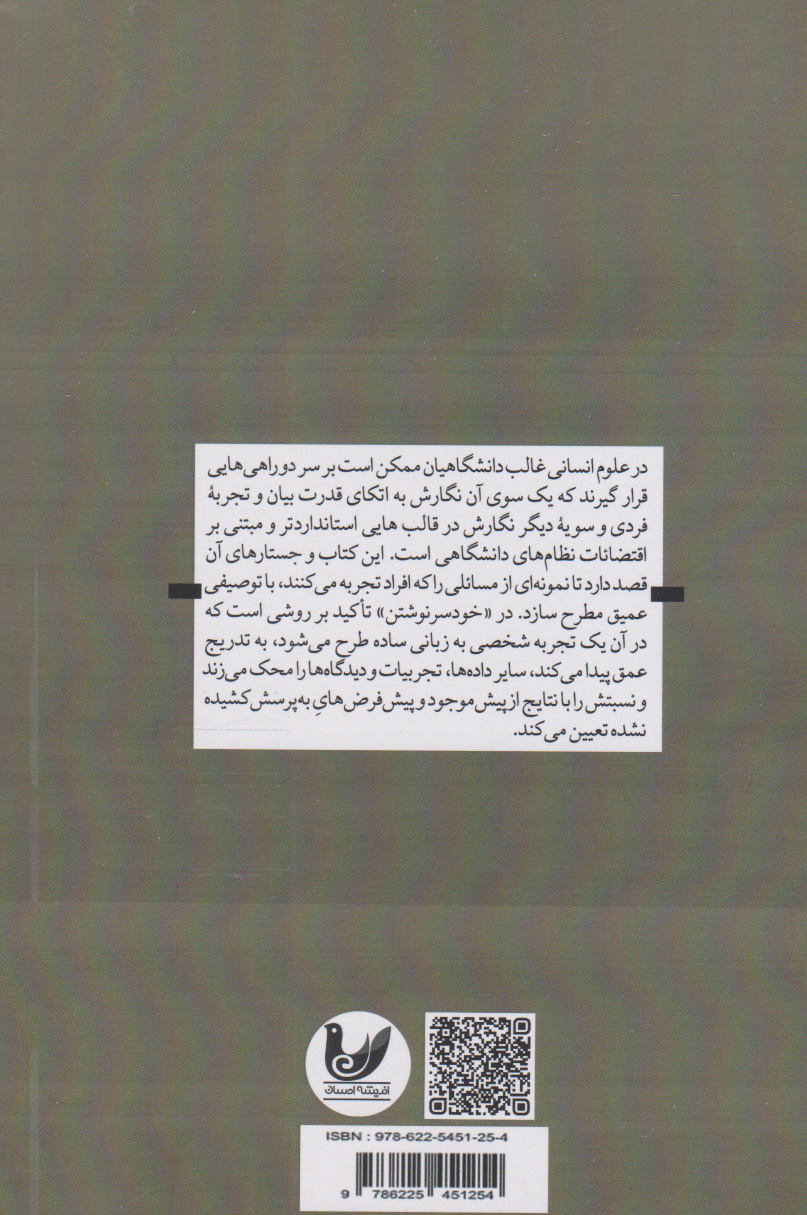 در علوم انسانی غالب دانشگاهیان ممکن است بر سر دوراهی‌هایی
قرار گیرند که یک سوی آن نگارش به اتکای قدرت بیان و تجربهٔ
فردی و سویهٔ دیگر نگارش در قالب هایی استانداردتر و مبتنی بر
اقتضائات نظام‌های دانشگاهی است. این کتاب و جستارهای آن
قصد دارد تا نمونه‌ای از مسائلی را که افراد تجربه می‌کنند، با توصیفی
عمیق مطرح سازد. در «خودسرنوشتن» تأکید بر روشی است که
در آن یک تجربه شخصی به زبانی ساده طرح می‌شود، به تدریج
عمق پیدا می‌کند، سایر داده‌ها، تجربیات و دیدگاه‌ها را محک می‌زند
و نسبتش را با نتایج از پیش موجود و پیش‌فرض‌هایِ به‌پرسش کشیده
نشده تعیین می‌کند.
اندیشه احسان
ISBN : 978-622-5451-25-4
9 786225 451254